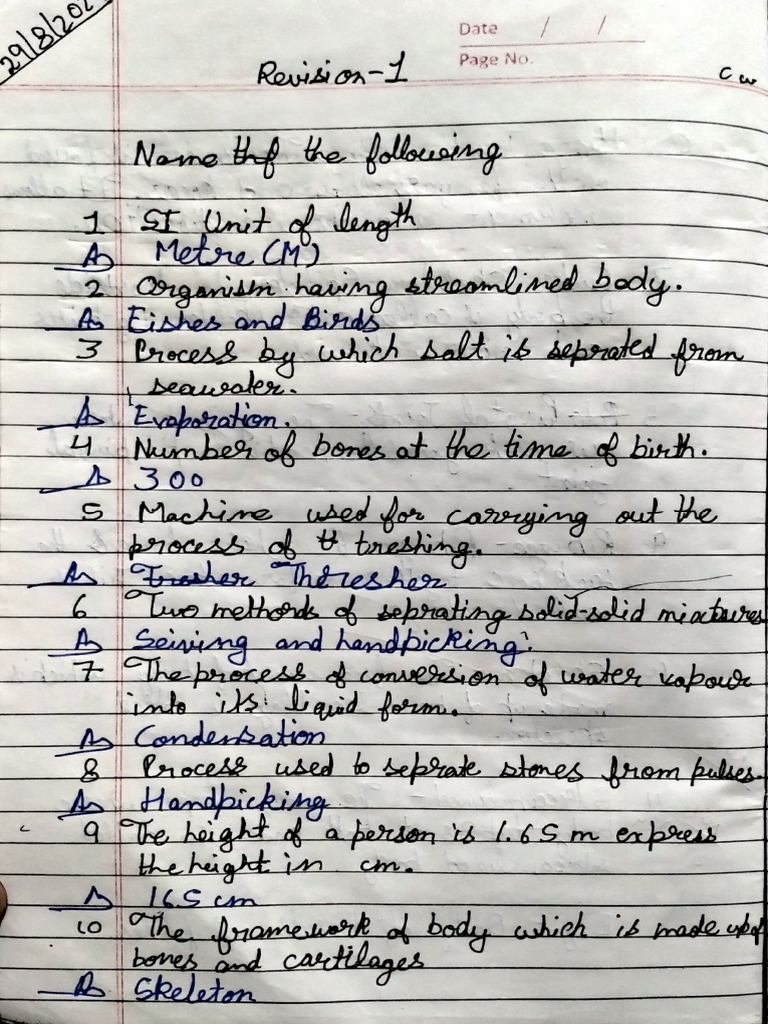 29/8/202
Date / /
Page No.
Revision-1
C w
Name thf the following
1 SI Unit of length
A Metre (M)
2 Organism having streamlined body.
A Fishes and Birds
3 Process by which salt is seprated from
seawater.
A Evaporation.
4 Number of bones at the time of birth.
A 300
5 Machine used for carrying out the
process of tt treshing.
A Trasher Thiresher
6 Two methords of seprating solid-solid mixtures
A Seiving and handpicking.
7 The process of conversion of water vapour
into its liquid form.
A Condensation
8 Process used to seprate stones from pulses.
A Handpicking
9 The height of a person is 1.65 m express
the height in cm.
A 165 cm
10 The framework of body which is made up of
bones and cartilages
A Skeleton